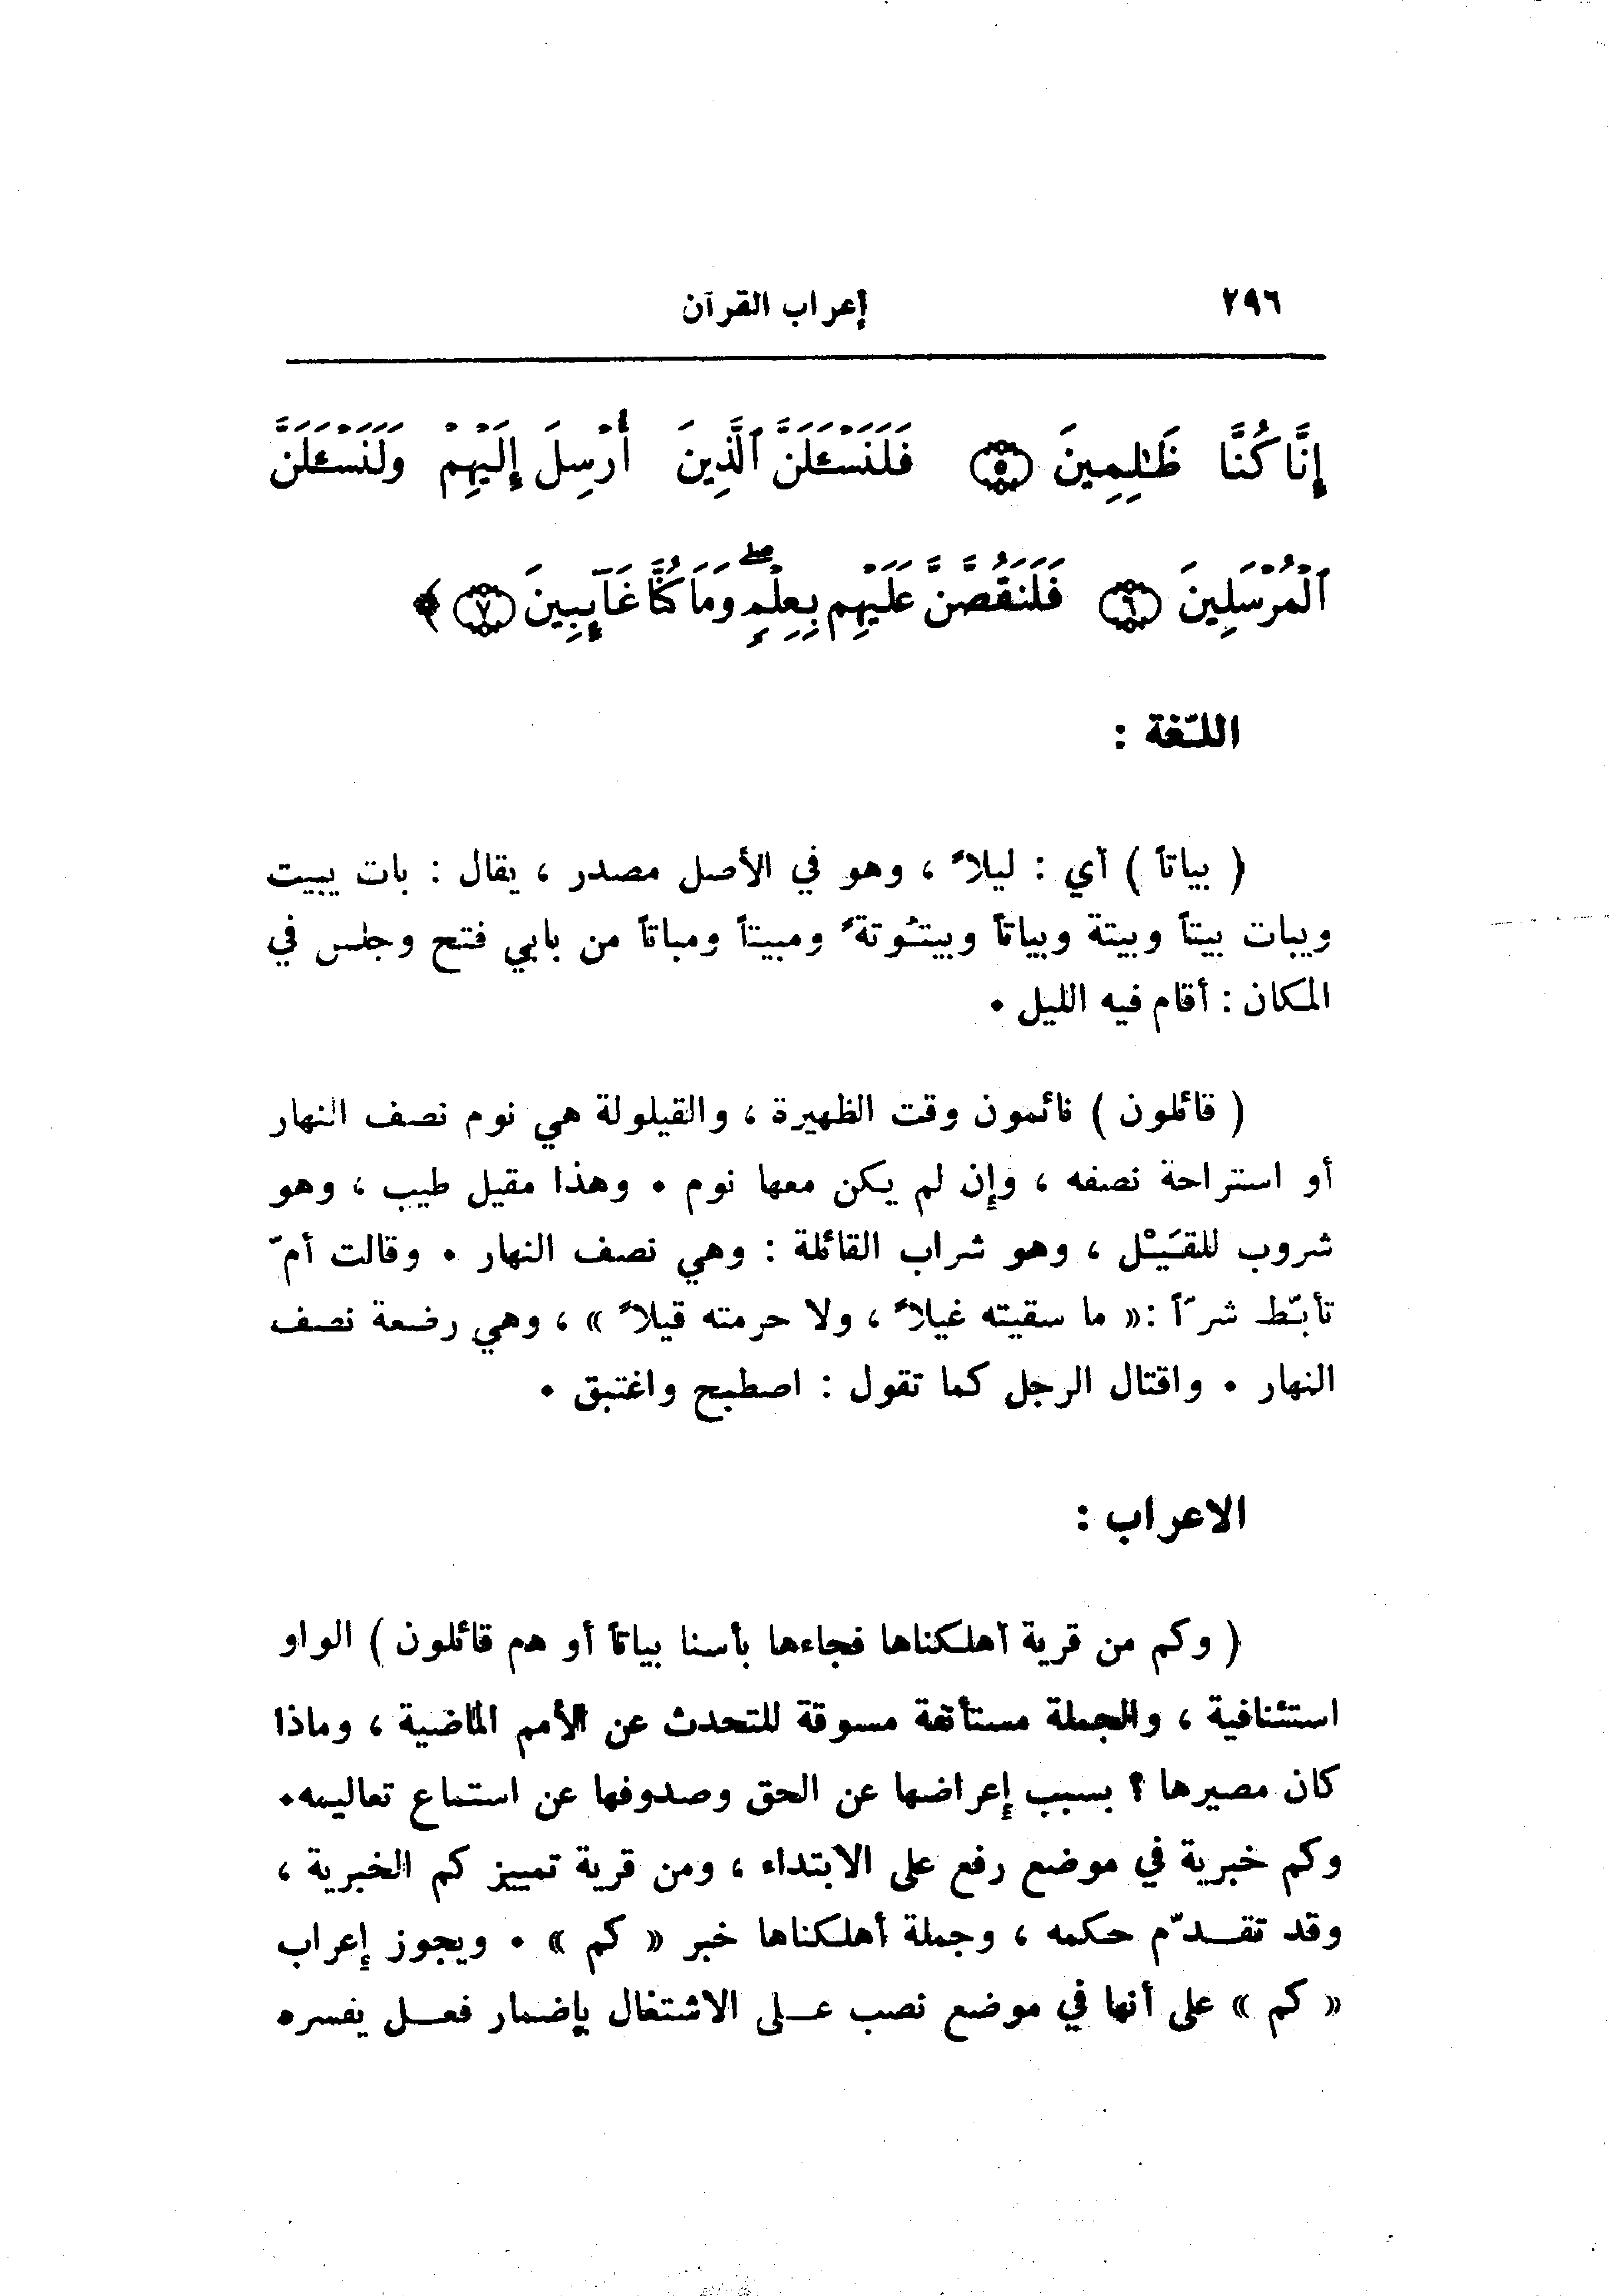 ٢٩٦ إعراب القرآن
إِنَّا كُنَّا ظَٰلِمِينَ ٥ فَلَنَسْـَٔلَنَّ ٱلَّذِينَ أُرْسِلَ إِلَيْهِمْ وَلَنَسْـَٔلَنَّ
ٱلْمُرْسَلِينَ ٦ فَلَنَقُصَّنَّ عَلَيْهِم بِعِلْمٍۖ وَمَا كُنَّا غَآئِبِينَ ٧ ﴾
اللّغة :
( بياتاً ) أي : ليلاً ، وهو في الأصل مصدر ، يقال : بات يبيت
ويبات بيتاً وبيتة وبياتاً وبيتوتةً ومبيتاً ومباتاً من بابي فتح وجلس في
المكان : أقام فيه الليل .
( قائلون ) نائمون وقت الظهيرة ، والقيلولة هي نوم نصف النهار
أو استراحة نصفه ، وإن لم يكن معها نوم . وهذا مقيل طيب ، وهو
شروب للقَيْل ، وهو شراب القائلة : وهي نصف النهار . وقالت أمّ
تأبّط شرّاً : « ما سقيته غيلاً ، ولا حرمته قيلاً » ، وهي رضعة نصف
النهار . واقتال الرجل كما تقول : اصطبح واغتبق .
الاعراب :
( وكم من قرية أهلكناها فجاءها بأسنا بياتاً أو هم قائلون ) الواو
استئنافية ، والجملة مستأنفة مسوقة للتحدث عن الأمم الماضية ، وماذا
كان مصيرها ؟ بسبب إعراضها عن الحق وصدوفها عن استماع تعاليمه.
وكم خبرية في موضع رفع على الابتداء ، ومن قرية تمييز كم الخبرية ،
وقد تقدّم حكمه ، وجملة أهلكناها خبر « كم » . ويجوز إعراب
« كم » على أنها في موضع نصب على الاشتغال بإضمار فعل يفسره